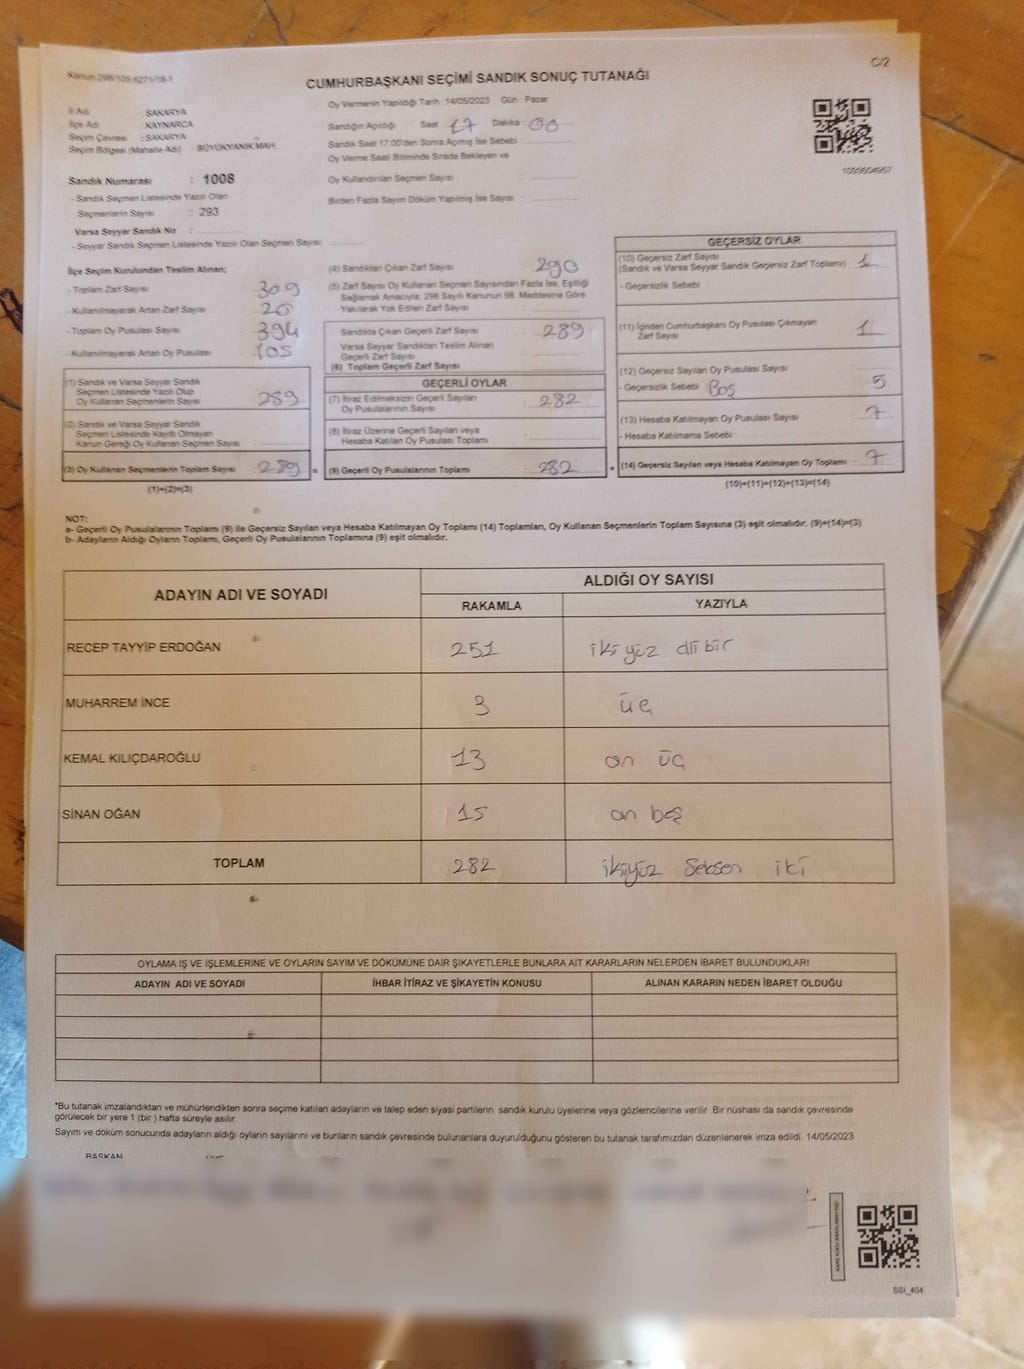 Kanun:298/105-6271/18-1
C/2
CUMHURBAŞKANI SEÇİMİ SANDIK SONUÇ TUTANAĞI
İl Adı : SAKARYA
İlçe Adı : KAYNARCA
Seçim Çevresi : SAKARYA
Seçim Bölgesi (Mahalle Adı) : BÜYÜKYANIK MAH.
Oy Vermenin Yapıldığı Tarih : 14/05/2023 Gün : Pazar
Sandığın Açıldığı Saat 17 Dakika : 00
Sandık Saat 17:00'den Sonra Açılmış İse Sebebi :
Oy Verme Saati Bitiminde Sırada Bekleyen ve
Oy Kullandırılan Seçmen Sayısı :
Birden Fazla Sayım Döküm Yapılmış İse Sayısı :
1093604957
Sandık Numarası : 1008
- Sandık Seçmen Listesinde Yazılı Olan
Seçmenlerin Sayısı : 293
Varsa Seyyar Sandık No :
- Seyyar Sandık Seçmen Listesinde Yazılı Olan Seçmen Sayısı:
İlçe Seçim Kurulundan Teslim Alınan;
- Toplam Zarf Sayısı : 309
- Kullanılmayarak Artan Zarf Sayısı : 20
- Toplam Oy Pusulası Sayısı : 394
- Kullanılmayarak Artan Oy Pusulası : 105
(1) Sandık ve Varsa Seyyar Sandık
Seçmen Listesinde Yazılı Olup
Oy Kullanan Seçmenlerin Sayısı : 289
(2) Sandık ve Varsa Seyyar Sandık
Seçmen Listesinde Kayıtlı Olmayan
Kanun Gereği Oy Kullanan Seçmen Sayısı :
(3) Oy Kullanan Seçmenlerin Toplam Sayısı : 289 =
(1)+(2)=(3)
(4) Sandıktan Çıkan Zarf Sayısı : 290
(5) Zarf Sayısı Oy Kullanan Seçmen Sayısından Fazla İse, Eşitliği
Sağlamak Amacıyla; 298 Sayılı Kanunun 98. Maddesine Göre
Yakılarak Yok Edilen Zarf Sayısı :
Sandıkta Çıkan Geçerli Zarf Sayısı : 289
Varsa Seyyar Sandıktan Teslim Alınan
Geçerli Zarf Sayısı :
(6) Toplam Geçerli Zarf Sayısı :
GEÇERLİ OYLAR
(7) İtiraz Edilmeksizin Geçerli Sayılan
Oy Pusulalarının Sayısı : 282
(8) İtiraz Üzerine Geçerli Sayılan veya
Hesaba Katılan Oy Pusulası Toplamı :
(9) Geçerli Oy Pusulalarının Toplamı : 282 +
GEÇERSİZ OYLAR
(10) Geçersiz Zarf Sayısı
(Sandık ve Varsa Seyyar Sandık Geçersiz Zarf Toplamı) : 1
- Geçersizlik Sebebi :
(11) İçinden Cumhurbaşkanı Oy Pusulası Çıkmayan
Zarf Sayısı : 1
(12) Geçersiz Sayılan Oy Pusulası Sayısı :
- Geçersizlik Sebebi : Boş 5
(13) Hesaba Katılmayan Oy Pusulası Sayısı : 7
- Hesaba Katılmama Sebebi :
(14) Geçersiz Sayılan veya Hesaba Katılmayan Oy Toplamı : 7
(10)+(11)+(12)+(13)=(14)
NOT:
a- Geçerli Oy Pusulalarının Toplamı (9) ile Geçersiz Sayılan veya Hesaba Katılmayan Oy Toplamı (14) Toplamları, Oy Kullanan Seçmenlerin Toplam Sayısına (3) eşit olmalıdır. (9)+(14)=(3)
b- Adayların Aldığı Oyların Toplamı, Geçerli Oy Pusulalarının Toplamına (9) eşit olmalıdır.
ADAYIN ADI VE SOYADI ALDIĞI OY SAYISI
RAKAMLA YAZIYLA
RECEP TAYYİP ERDOĞAN 251 ikiyüz elli bir
MUHARREM İNCE 3 üç
KEMAL KILIÇDAROĞLU 13 on üç
SİNAN OĞAN 15 on beş
TOPLAM 282 ikiyüz seksen iki
OYLAMA İŞ VE İŞLEMLERİNE VE OYLARIN SAYIM VE DÖKÜMÜNE DAİR ŞİKAYETLERLE BUNLARA AİT KARARLARIN NELERDEN İBARET BULUNDUKLARI
ADAYIN ADI VE SOYADI İHBAR İTİRAZ VE ŞİKAYETİN KONUSU ALINAN KARARIN NEDEN İBARET OLDUĞU
*Bu tutanak imzalandıktan ve mühürlendikten sonra seçime katılan adayların ve talep eden siyasi partilerin sandık kurulu üyelerine veya gözlemcilerine verilir. Bir nüshası da sandık çevresinde
görülecek bir yere 1 (bir ) hafta süreyle asılır.
Sayım ve döküm sonucunda adayların aldığı oyların sayılarını ve bunların sandık çevresinde bulunanlara duyurulduğunu gösteren bu tutanak tarafımızdan düzenlenerek imza edildi. 14/05/2023
BAŞKAN
GGI_404